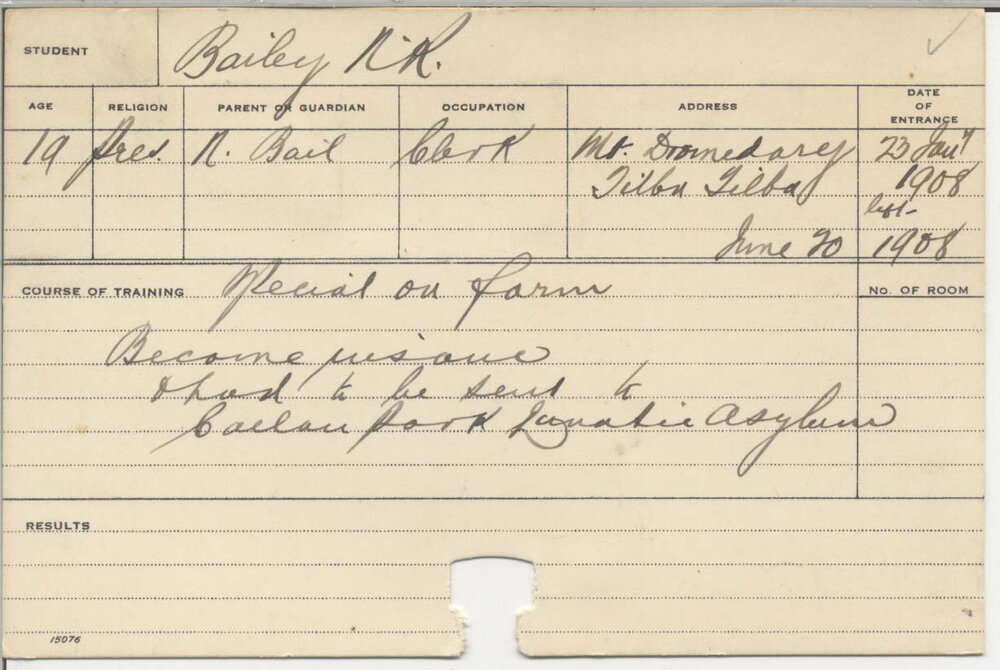 STUDENT Bailey N.R.
AGE RELIGION PARENT OR GUARDIAN OCCUPATION ADDRESS DATE OF ENTRANCE
19 Pres. N. Bail Clerk Mt. Dromedary 23 Jany
Tilba Tilba 1908
left
June 20 1908
COURSE OF TRAINING Special on farm
No. OF ROOM
Become insane
& had to be sent to
Callan Park Lunatic Asylum
RESULTS
15076